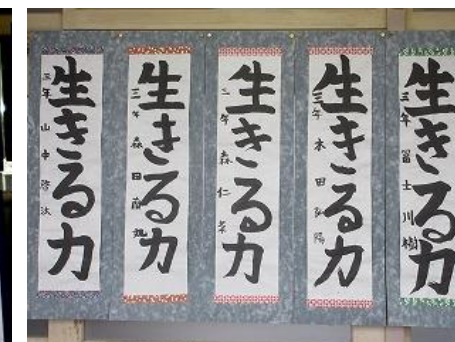 生きる力
三年 山中
生きる力
三年 森田
生きる力
三年 森 仁
生きる力
三年 本田
生きる力
三年 冨士川 樹